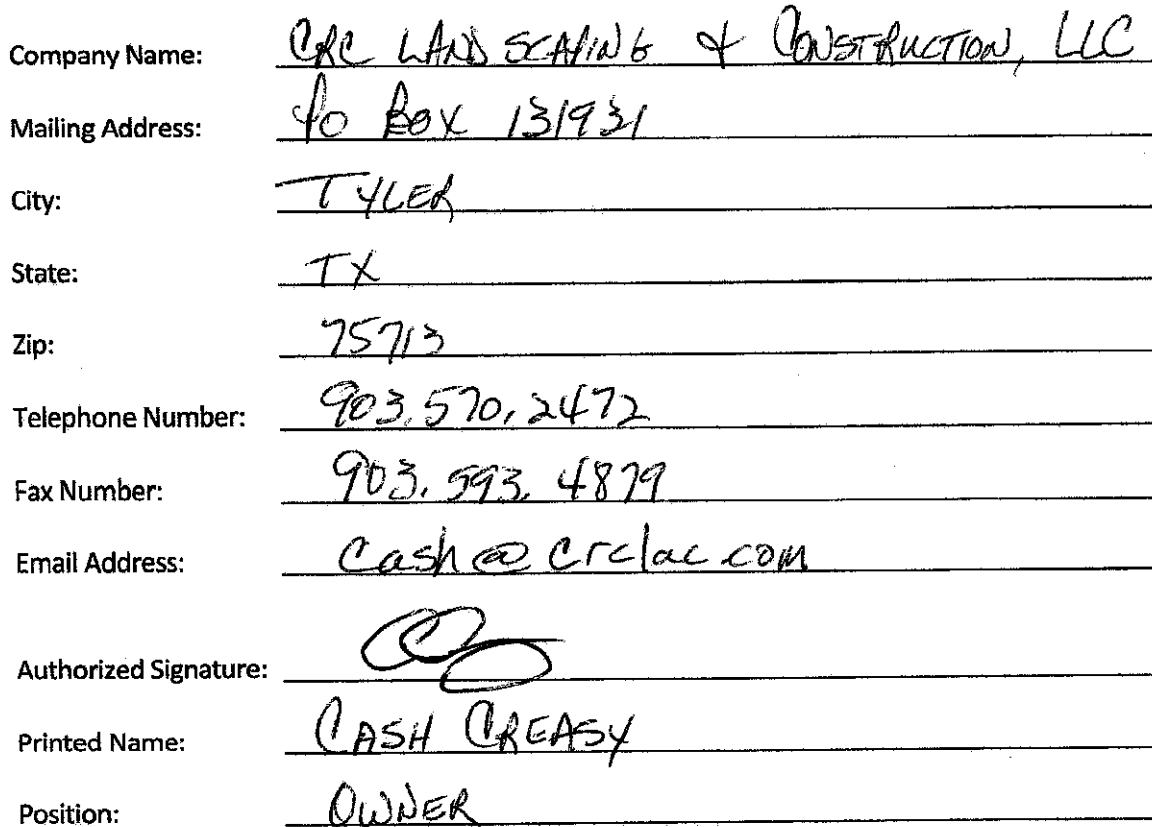 Company Name: CRC LANDSCAPING & CONSTRUCTION, LLC
Mailing Address: PO BOX 131931
City: TYLER
State: TX
Zip: 75713
Telephone Number: 903.570.2472
Fax Number: 903.593.4879
Email Address: Cash@crclac.com
Authorized Signature:
Printed Name: CASH CREASY
Position: OWNER